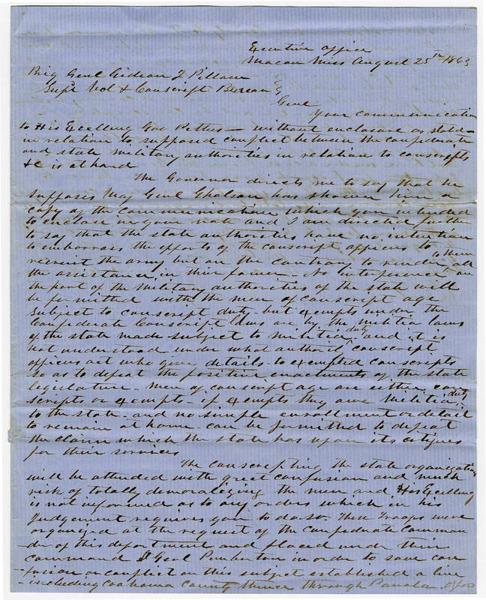 Executive office
Macon Miss August 25th 1863
Brig Genl Gideon J Pillow
Supt Vol & Conscript Bureau
Genl
Your communication
to His Excellency Gov Pettus — without enclosure as stated —
in relation to supposed conflict between the confederate
and state military authorities in relation to conscripts
&c is at hand
The Governor directs me to say that he
supposes Maj Genl Gholson has shown him a
copy of the communication which you intended
to enclose in your note and I am directed
to say that the state authorities have no intention
to embarrass the efforts of the conscript officers to
recruit the army but on the contrary to render them all
the assistance in their power. No interference on
the part of the Military authorities of the state will
be permitted with the men of conscript age
subject to conscript duty but exempts under the
Confederate Conscript laws are by the militia laws
of the state made subject to militia duty and it is
not understood under what authority conscript
officers act who give details to exempted conscripts
so as to defeat the positive enactments of the state
legislature. Men of conscript age are either con
scripts or exempts. if exempts they owe Military duty
to the state and no simple enrollment or detail
to remain at home can be permitted to defeat
the claim which the state has upon its citizens
for their services
The conscripting the state organization
will be attended with great confusion and much
risk of totally demoralizing the men and His Excellency
is not informed as to any orders which in his
judgement requires you to do so. These Troops were
organized at the request of the Confederate Comman
der of this department and placed under their
command. Lt Genl Pemberton in order to save con
fusion or conflict on this subject established a line
including Coahoma County thence through Panola